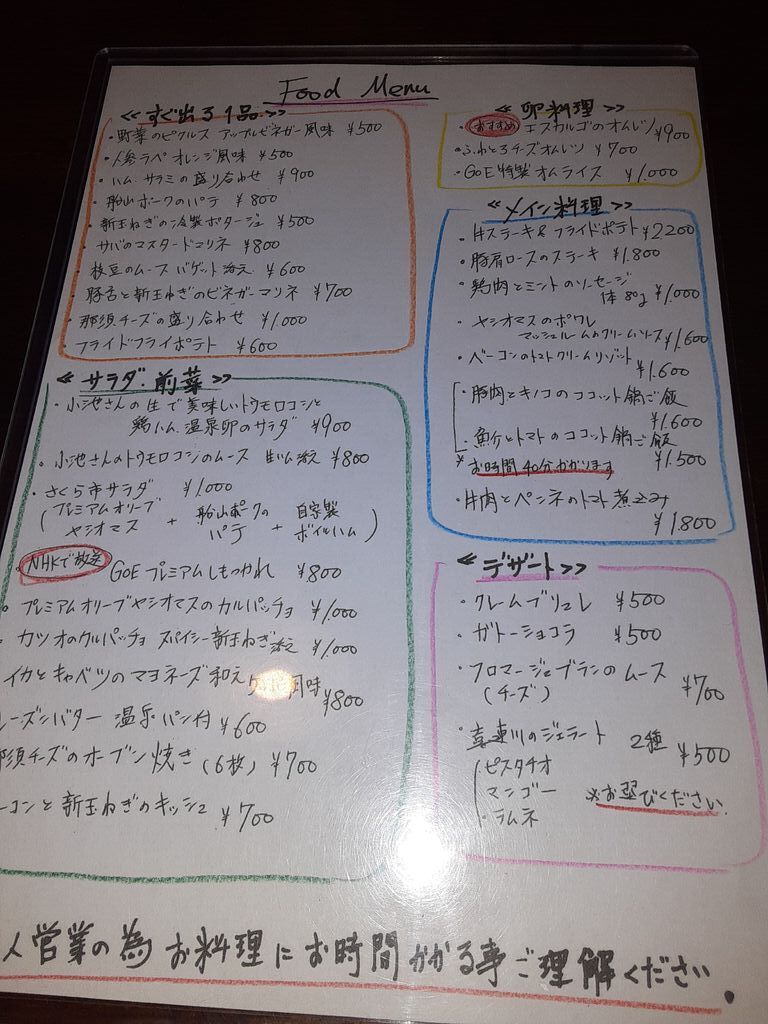 Food Menu
≪すぐ出る1品≫
・野菜のピクルス アップルビネガー風味 ¥500
・人参ラペ オレンジ風味 ¥500
・ハム、サラミの盛り合わせ ¥900
・船山ポークのパテ ¥800
・新玉ねぎの冷製ポタージュ ¥500
・サバのマスタードマリネ ¥800
・枝豆のムース バゲット添え ¥600
・豚舌と新玉ねぎのビネガーマリネ ¥700
・那須チーズの盛り合わせ ¥1.000
・フライドフライポテト ¥600
≪サラダ・前菜≫
・小池さんの生で美味しいトウモロコシと
鶏ハム、温泉卵のサラダ ¥900
・小池さんのトウモロコシのムース 生ハム添え ¥800
・さくら市サラダ ¥1.000
(プレミアムオリーブ ヤシオマス + 船山ポークの パテ + 自家製 ボイルハム)
・NHKで放送 GOEプレミアムしもつかれ ¥800
・プレミアムオリーブヤシオマスのカルパッチョ ¥1.000
・カツオのカルパッチョ スパイシー新玉ねぎ添え ¥1.000
イカとキャベツのマヨネーズ和え 風味 ¥800
レーズンバター 温製パン付 ¥600
那須チーズのオーブン焼き (6枚) ¥700
ーコンと新玉ねぎのキッシュ ¥700
≪卵料理≫
・おすすめ エスカルゴのオムレツ ¥900
・ふわとろチーズオムレツ ¥700
・GOE特製オムライス ¥1.000
≪メイン料理≫
・牛ステーキ&フライドポテト ¥2.200
・豚肩ロースのステーキ ¥1.800
・鶏肉とミントのソーセージ
1本80g ¥1.000
・ヤシオマスのポワレ
マッシュルームのクリームソース ¥1.600
・ベーコンのトマトクリームリゾット
¥1.600
・豚肉とキノコのココット鍋ご飯
¥1.600
・魚介とトマトのココット鍋ご飯
¥1.500
※お時間40分かかります
・牛肉とペンネのトマト煮込み
¥1.800
≪デザート≫
・クレームブリュレ ¥500
・ガトーショコラ ¥500
・フロマージュブランのムース
(チーズ) ¥700
・喜連川のジェラート 2種 ¥500
・ピスタチオ
・マンゴー ※お選びください
・ラムネ
人営業の為お料理にお時間かかる事ご理解ください。